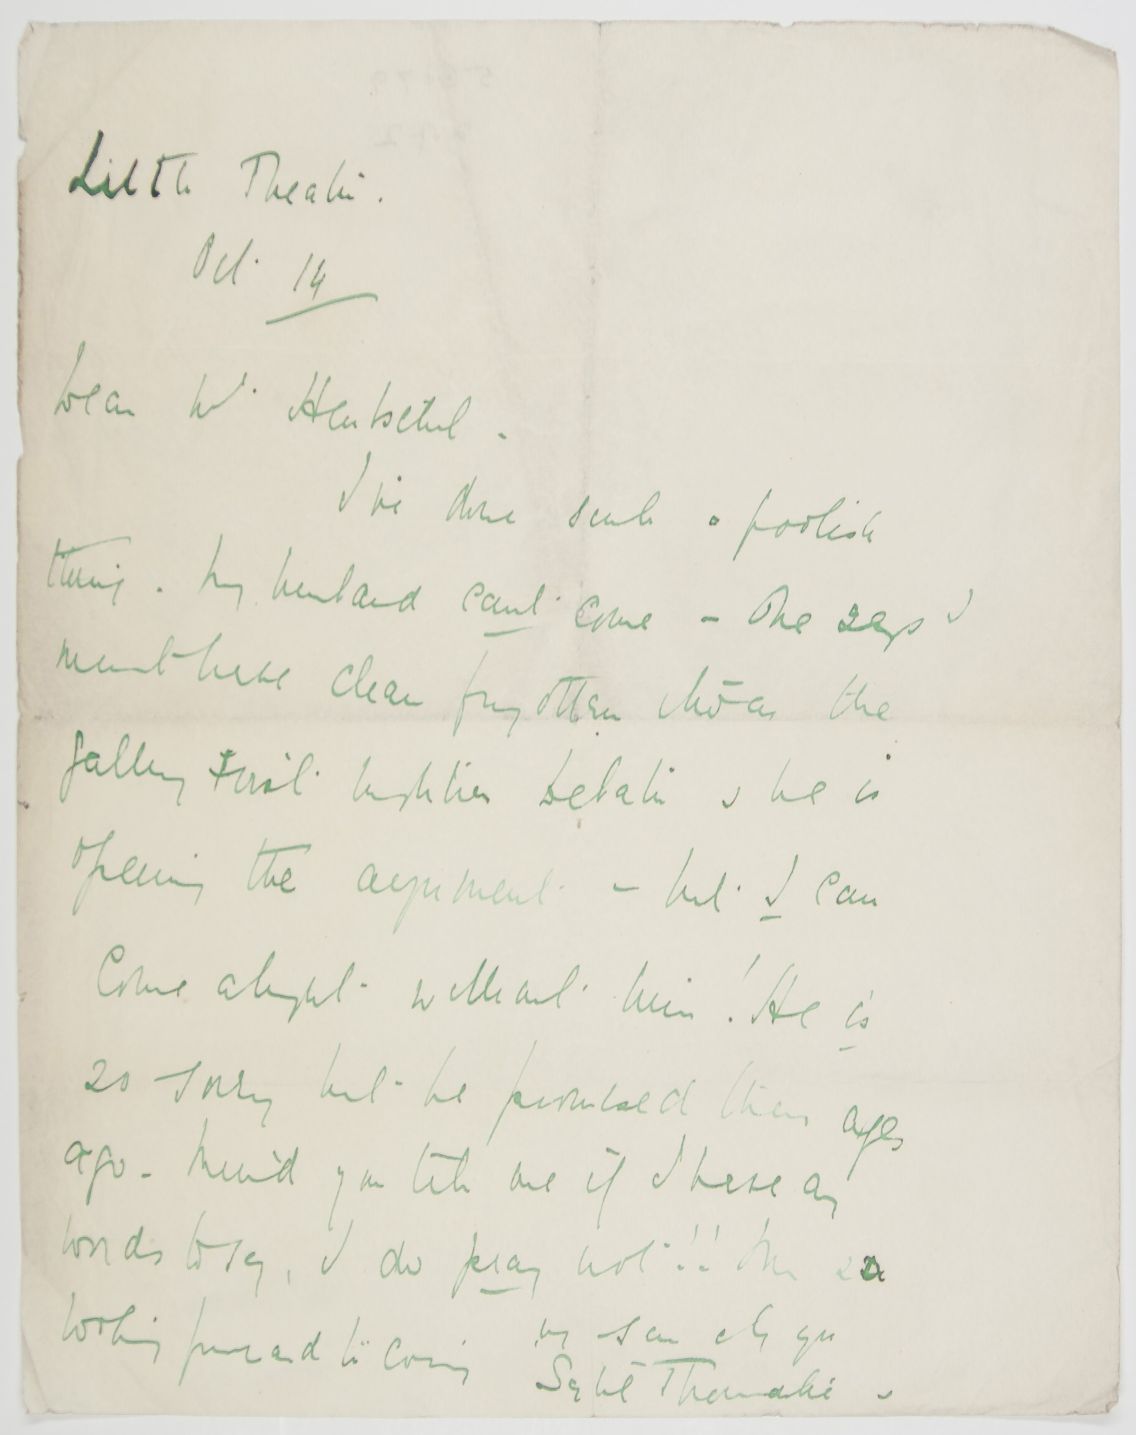 Little Theatre.
Oct. 14
Dear Mr. Hentschel.
I've done such a foolish
thing. My husband can't come - He says I
must have clean forgotten it was the
Gallery First Nighters Debate & he is
opening the argument - but I can
come alright without him! He is
so sorry but he promised them ages
ago. Mind you tell me if I have any
words to say, I do pray not!! I'm so
looking forward to coming
Yrs sincerely
Sybil Thorndike